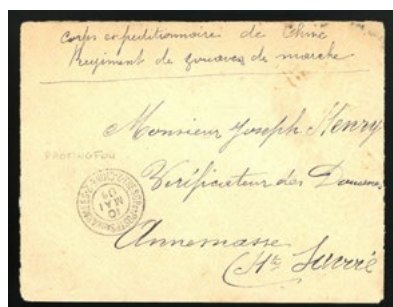 Corps expéditionnaire de Chine
Régiment de zouaves de marche
Monsieur Joseph Henry
PAOTINGFOU
Vérificateur des Douanes
10
MAI
Annemasse
(Hte Savoie